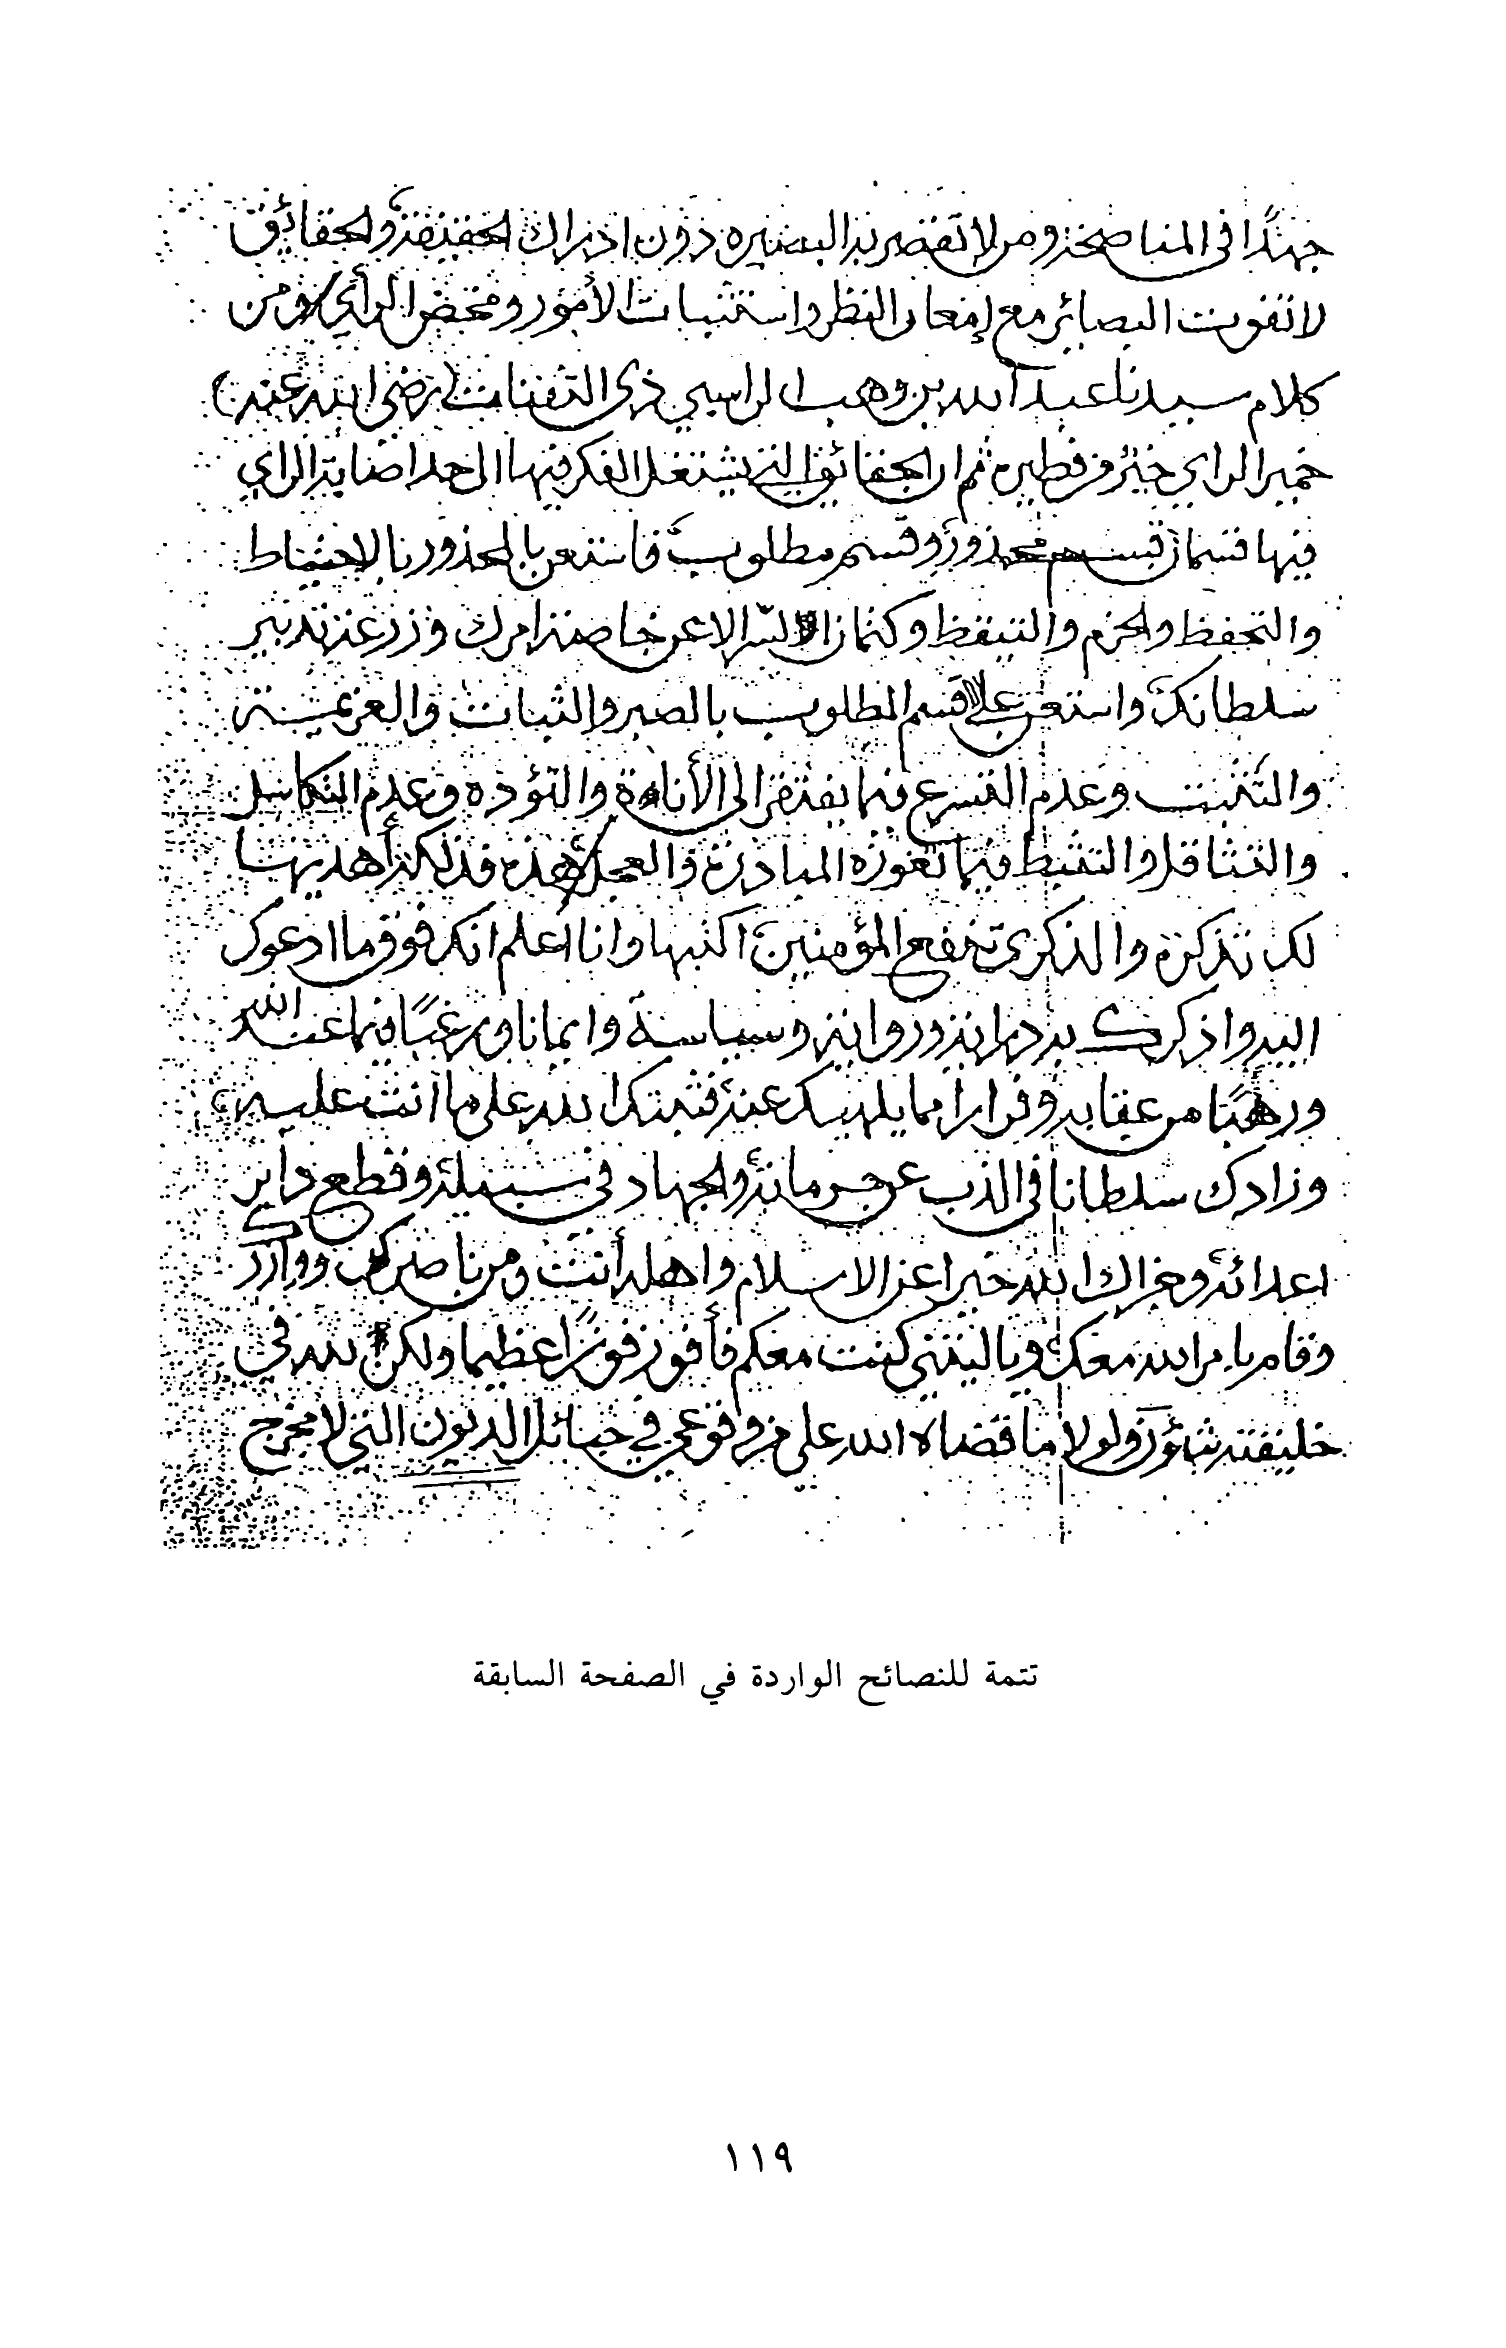 جهدًا في المناصحة ومن لا تقصر به البصيرة دون ادراك الحقيقة والحقائق
لا تفوت البصائر مع إمعان النظر واستثبات الأمور ومخض الرأي ومن
كلام سيدنا عبد الله بن وهب الراسبي ذي الثفنات (رضي الله عنه)
خمير الراي خير من فطيره ثم ان الحقائق التي يشتغل الفكر فيها الى حد اصابة الراي
فيها قسمان قسم محذور وقسم مطلوب فاستعن بالمحذور بالاحتياط
والتحفظ والحزم والتيقظ وكتمان السر الا عن خاصة امرك وزر عنه تدبير
سلطانك واستعن على قسم المطلوب بالصبر والثبات والعزيمة
والتثبت وعدم التسرع فيما يفتقر الى الأناة والتؤده وعدم التكاسل
والتثاقل والتثبط فيما تعوزه المبادرة والعجل هذه فذلكة أهديها
لك تذكرة والذكرى تنفع المؤمنين اكتبها وانا اعلم انك فوق ما ادعوك
اليه واذكرك به دراية ورواية وسياسة وايمانا ورغبًا فيما عند الله
ورهبًا من عقابه وفرارا مما يلهيك عنه فثبتك الله على ما انت عليه
وزادك سلطانا في الذب عن حرماته والجهاد في سبيله وقطع دابر
اعدائه وجزاك الله خيرا عن الاسلام واهله أنت ومن ناصرك ووازرك
وقام بامر الله معك ويا ليتني كنت معكم فأفوز فوزًا عظيما ولكن لله في
خليقته شئون ولولا ما قضاه الله علي من وقوعي في حبائل الديون التي لا مخرج
تتمة للنصائح الواردة في الصفحة السابقة
١١٩